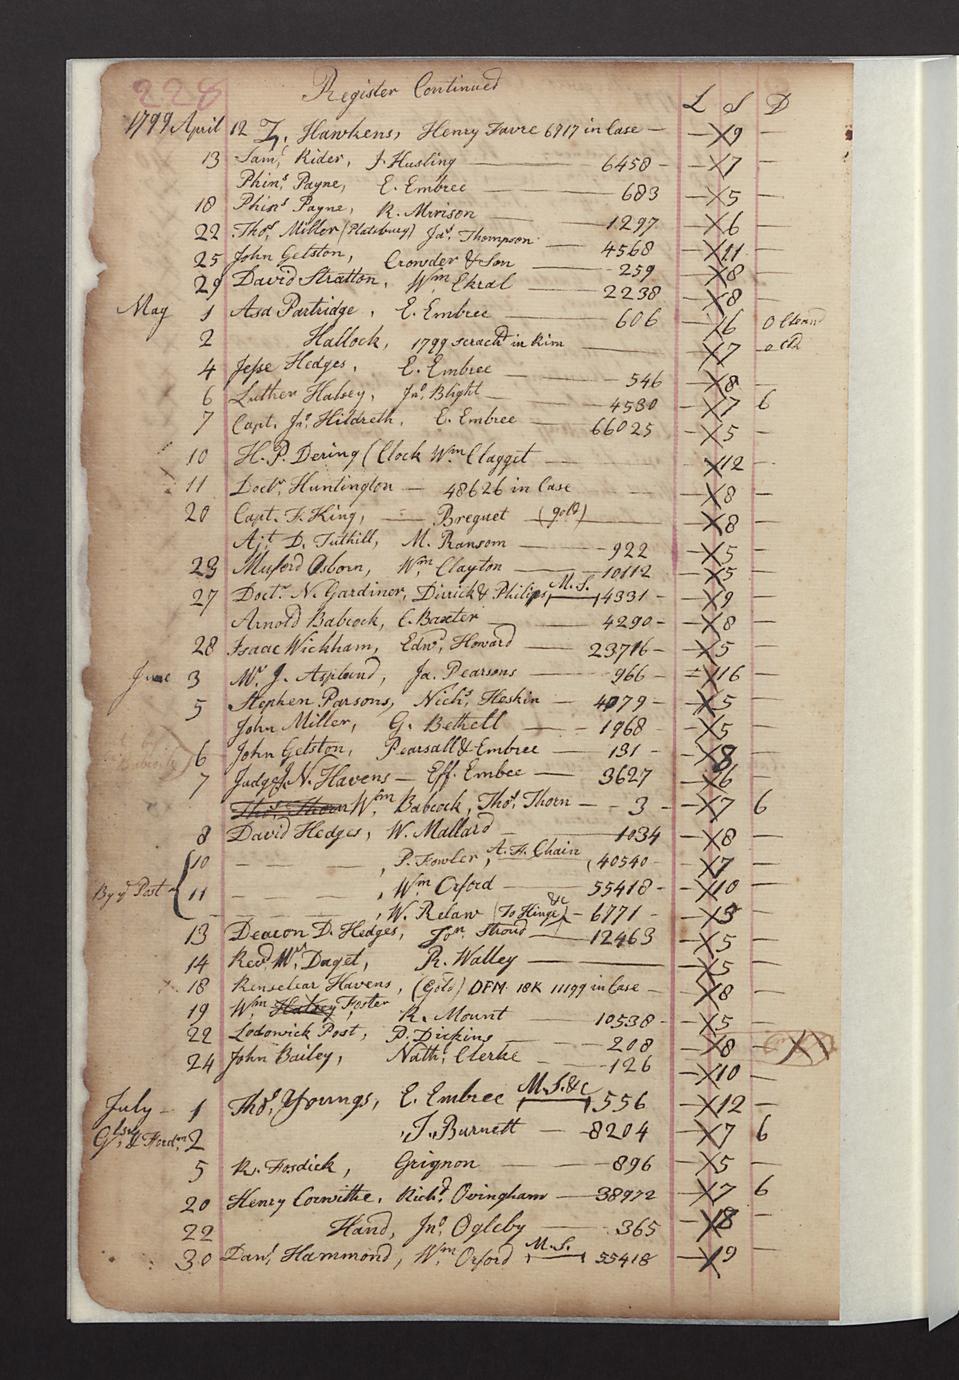 228 Register Continued L S D
1799 April 12 Z. Hawkens, Henry Favre 6717 in Case — X9 —
13 Saml. Rider, J. Husling — 6458 — X7 —
Phins. Payne, E. Embree — 683 — X5 —
18 Phins. Payne, R. Morison — 1297 — X6 —
22 Thos. Miller (Plattsburg) Jas. Thompson — 4568 — X11 —
25 John Gelston, Crowder & Son — 259 — X8 —
29 David Stratton, Wm. Ekral — 2238 — X8 —
May 1 Asa Partridge, E. Embree — 606 — X6 0
2 Hallock, 1799 scrachd in Rim — X7 —
4 Jesse Hedges, E. Embree — 546 — X8 —
6 Luther Halsey, Jno. Blight — 4530 — X7 6
7 Capt. Jno. Hildreth, E. Embree — 66025 — X5 —
10 H. P. Dering (Clock Wm. Clagget — X12 —
11 Doctr. Huntington — 48626 in Case — X8 —
20 Capt. F. King, — Breguet (gold) — X8 —
Ajt. D. Tuthill, M. Ransom — 922 — X5 —
23 Muford Osborn, Wm. Clayton — 10112 — X5 —
27 Doctr. N. Gardiner, Dirrick & Philips, M.S. 4331 — X9 —
Arnold Babcock, C. Baxter — 4290 — X8 —
28 Isaac Wickham, Edwd. Howard — 23716 — X5 —
June 3 Mr. J. Asplund, Ja. Pearsons — 966 — X16 —
5 Stephen Parsons, Nichs. Heskin — 4079 — X5 —
John Miller, G. Bethell — 1968 — X5 —
6 John Gelston, Pearsall & Embree — 131 — X8 —
7 Judge J. N. Havens — Eff. Embee — 3627 — X6 —
Thos. Thorn Wm. Babcock, Thos. Thorn — 3 — X7 6
8 David Hedges, W. Mallard — 1034 — X8 —
10 — — , P. Fowler, A. H. Chain (40540 — X7 —
By ye Post 11 — — , Wm. Orford — 55418 — X10 —
— — , W. Relaw (To Hinge &c) — 6771 — X3 —
13 Deacon D. Hedges, Jon. Stroud — 12463 — X5 —
14 Revd. Mr. Daget, R. Walley — X5 —
18 Renselear Havens, (Gold) DFM 18K 11199 in Case — X8 —
19 Wm. Halsey Foster, R. Mount — 10538 — X5 —
22 Lodowick Post, P. Dickins — 208 — X8 —
24 John Bailey, Nathl. Clerke — 126 — X10 —
July — 1 Thos. Youngs, E. Embree M.S. &c 556 — X12 —
2 " J. Burnett — 8204 — X7 6
5 R. Fosdick, Grignon — 896 — X5 —
20 Henry Corwithe, Richd. Ovingham — 38972 — X7 6
22 Hand, Jno. Ogleby — 365 — X8 —
30 Danl. Hammond, Wm. Orford M.S. 55418 — X9 —